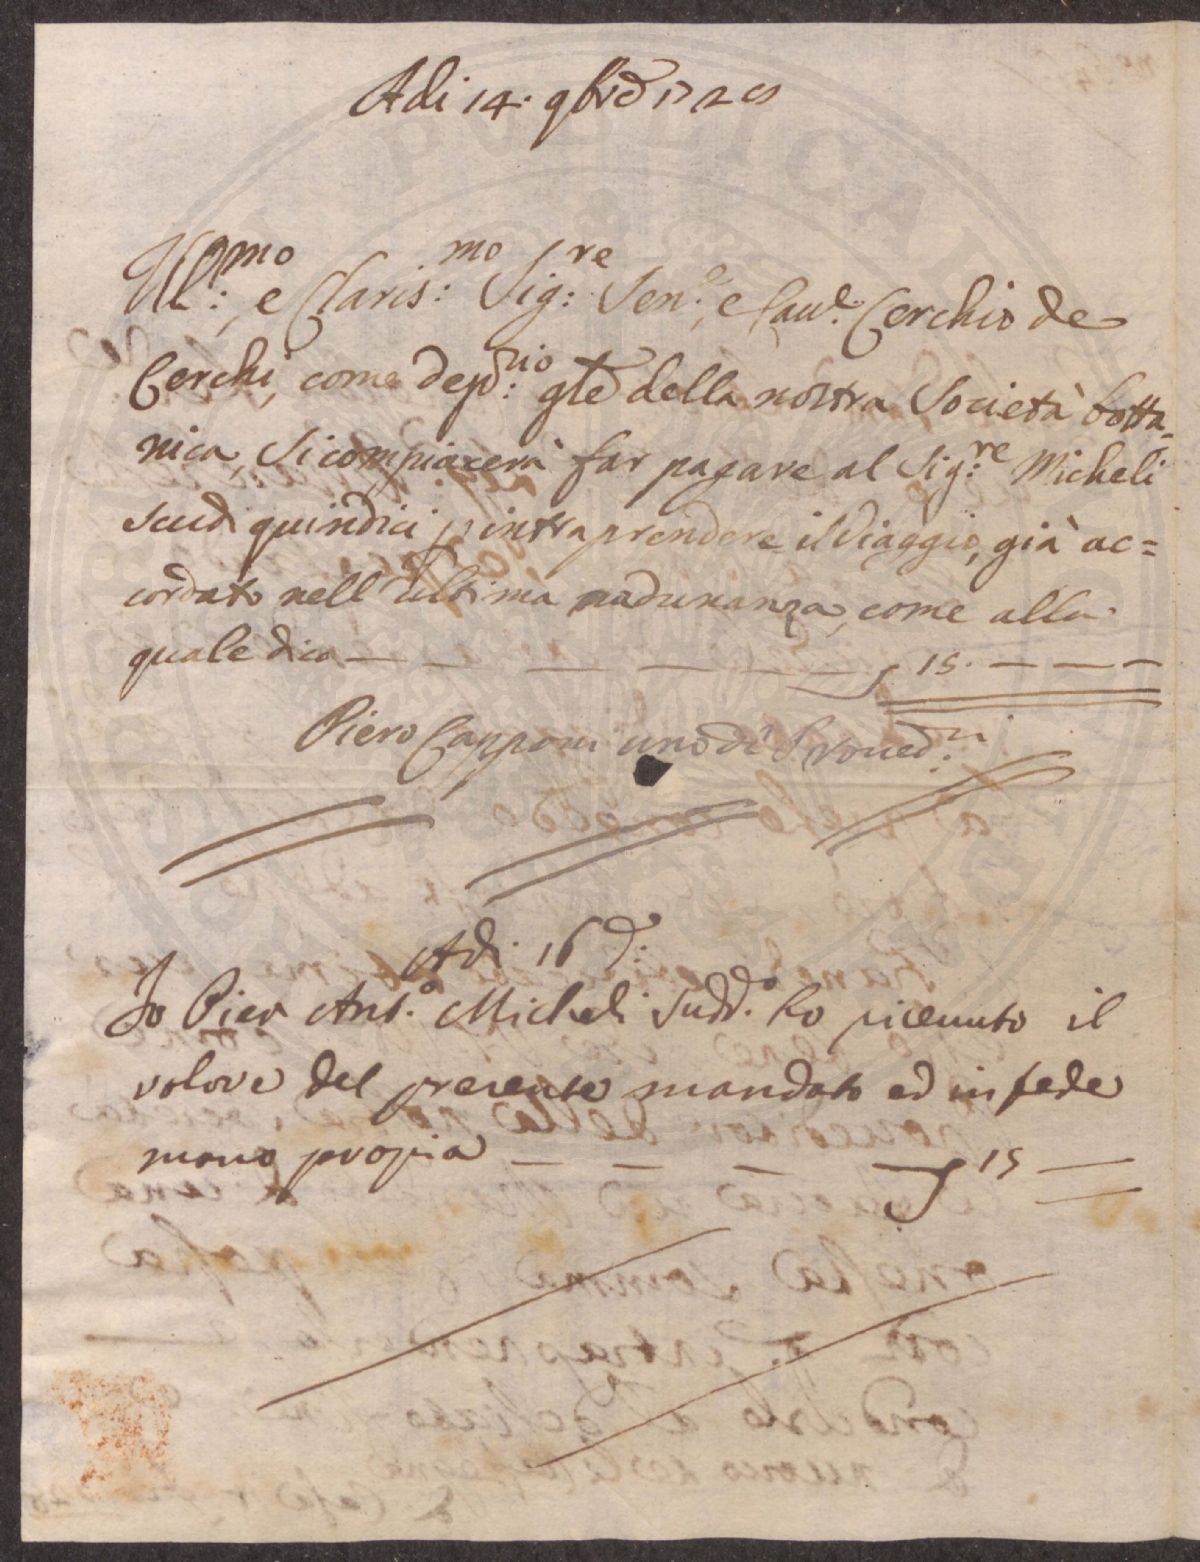 Adi 14: 9bre 17
Ill:mo, e Claris:mo Sig:re Sen:e, e Cau:e Cerchio de
Cerchi, come dep:rio gle della nostra Società botta=
nica, si compiacerà far pagare al Sig:re Micheli
scudi quindici p intraprendere il Viaggio, già ac=
cordato nell'ultima radunanza, come alla
quale dico — — — — — 15. — — —
Piero Capponi uno di Proued:ri
Adi 16 d:
Io Pier Ant.o Micheli Sudd.o ho riceuuto il
valore del presente mandato ed in fede
mano propia — — — 15 —